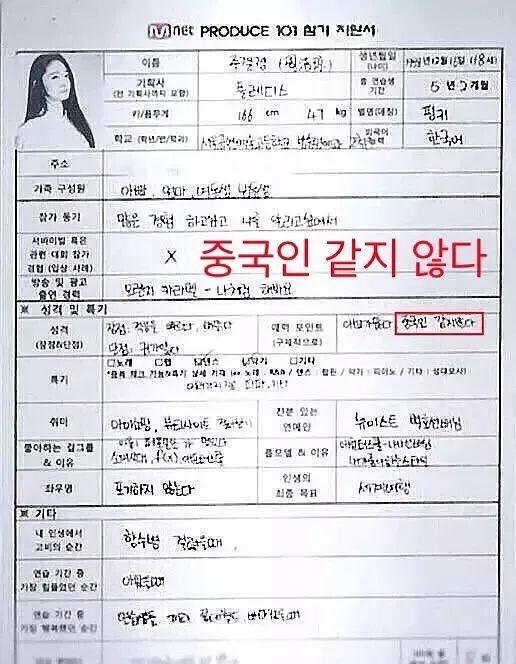 Mnet PRODUCE 101 참가 지원서
이름 주결경 생년월일 (나이) (18세)
기획사 (전 기획사까지 포함) 플레디스 총 연습생 기간 5년 2개월
키/몸무게 166 cm 47 kg 별명(애칭) 핑키
학교 (학년/반/학과) 외국어 능력 한국어
주소
가족 구성원 아빠, 엄마, 여동생, 남동생
참가 동기 많은 경험 하고싶고 나를 알리고싶어서
서바이벌 혹은 관련 대회 참가 경험 (입상 사례) X
중국인 같지 않다
방송 및 광고 출연 경력 오렌지 카라멜 - 나처럼 해봐요
※ 성격 및 특기
성격 (장점&단점) 장점: 적응을 빠르다, 단점: 귀가얇다
매력 포인트 (구체적으로) 중국인 같지않다
특기 □노래 □랩 ☑댄스 ☑악기 □기타
취미 아이쇼핑, 뷰티사이트
친분 있는 연예인 뉴이스트 백호선배님
좋아하는 걸그룹 & 이유 소녀시대, f(x), 애프터스쿨
롤모델 & 이유 애프터스쿨-나나선배님
좌우명 포기하지 않는다
인생의 최종 목표 세계여행
※ 기타
내 인생에서 고비의 순간 향수병 걸렸을때
연습 기간 중 가장 힘들었던 순간 아팠을때
연습 기간 중 가장 행복했던 순간